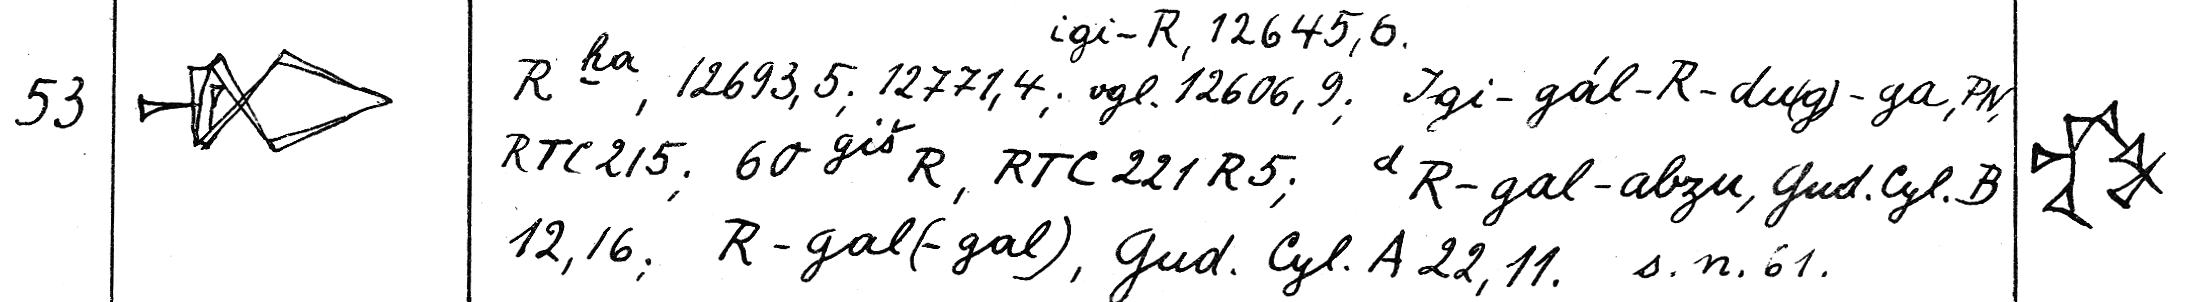 igi-R, 12645,6.
53 R ḫa, 12693,5; 12771,4; vgl. 12606,9; Igi-gál-R-du(g)-ga, PN,
RTC 215; 60 giš R, RTC 221 R 5; d R-gal-abzu, Gud. Cyl. B
12,16; R-gal(-gal), Gud. Cyl. A 22,11. s. n. 61.